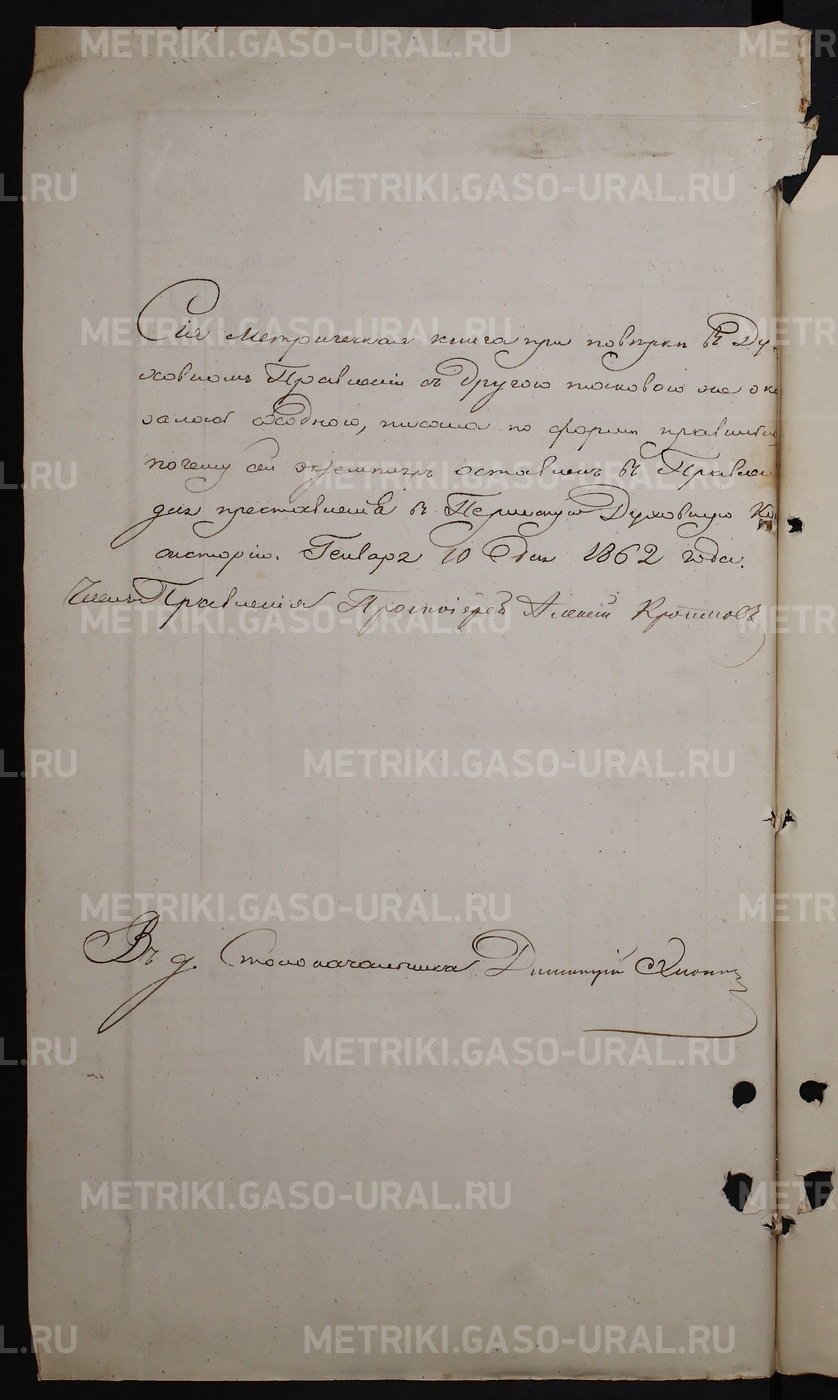 Сія метрическая книга при повѣрки въ Ду-
ховномъ Правленіи съ другою таковою же ока
залась сходною, писана по формѣ правильно
почему сей экземпляръ оставленъ въ Правлен
для преставленія въ Пермскую Духовную Ко
нсторію. Генваря 10 дня 1862 года.
Членъ Правленія Протоіерей Алексій
Въ д. Столоначальника Димитрій
METRIKI.GASO-URAL.RU